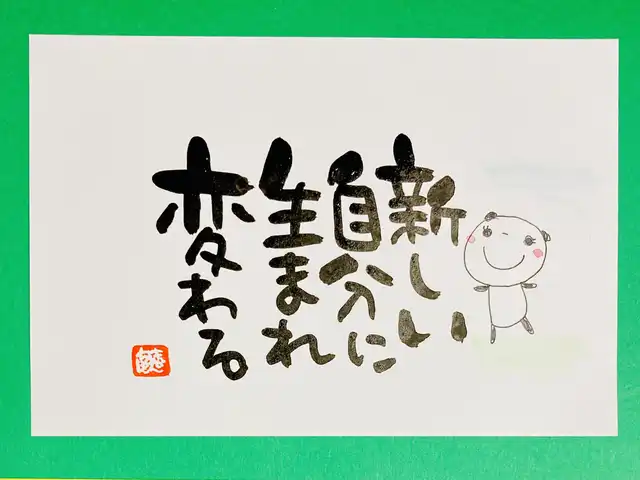 新しい
自分に
生まれ
変わる